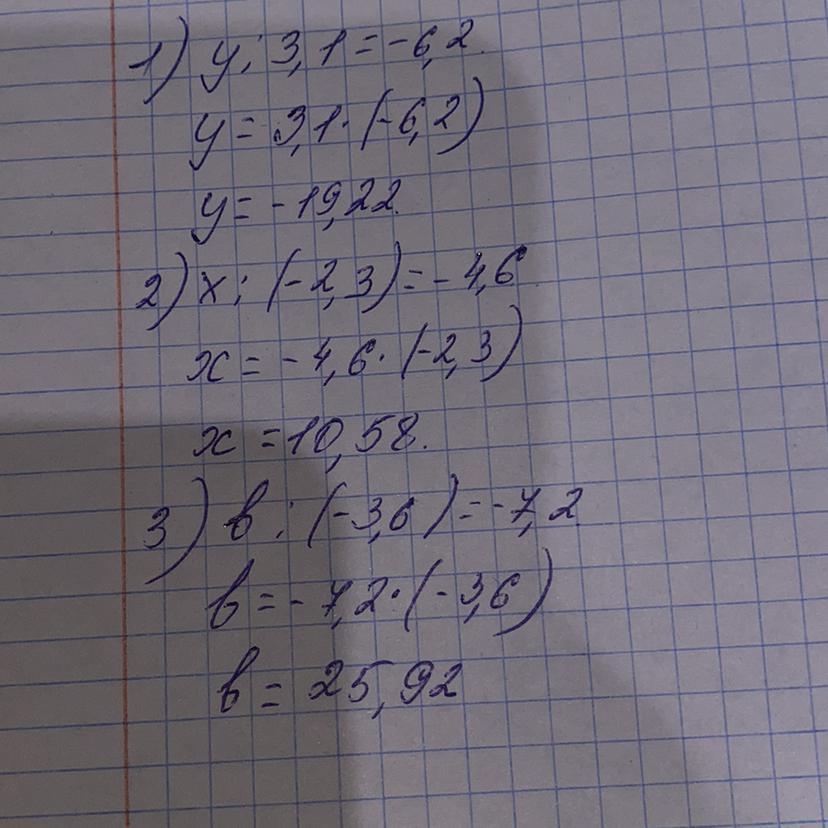 1) y : 3,1 = -6,2.
y = 3,1 · (-6,2)
y = -19,22.
2) x : (-2,3) = -4,6
x = -4,6 · (-2,3)
x = 10,58.
3) b : (-3,6) = -7,2
b = -7,2 · (-3,6)
b = 25,92